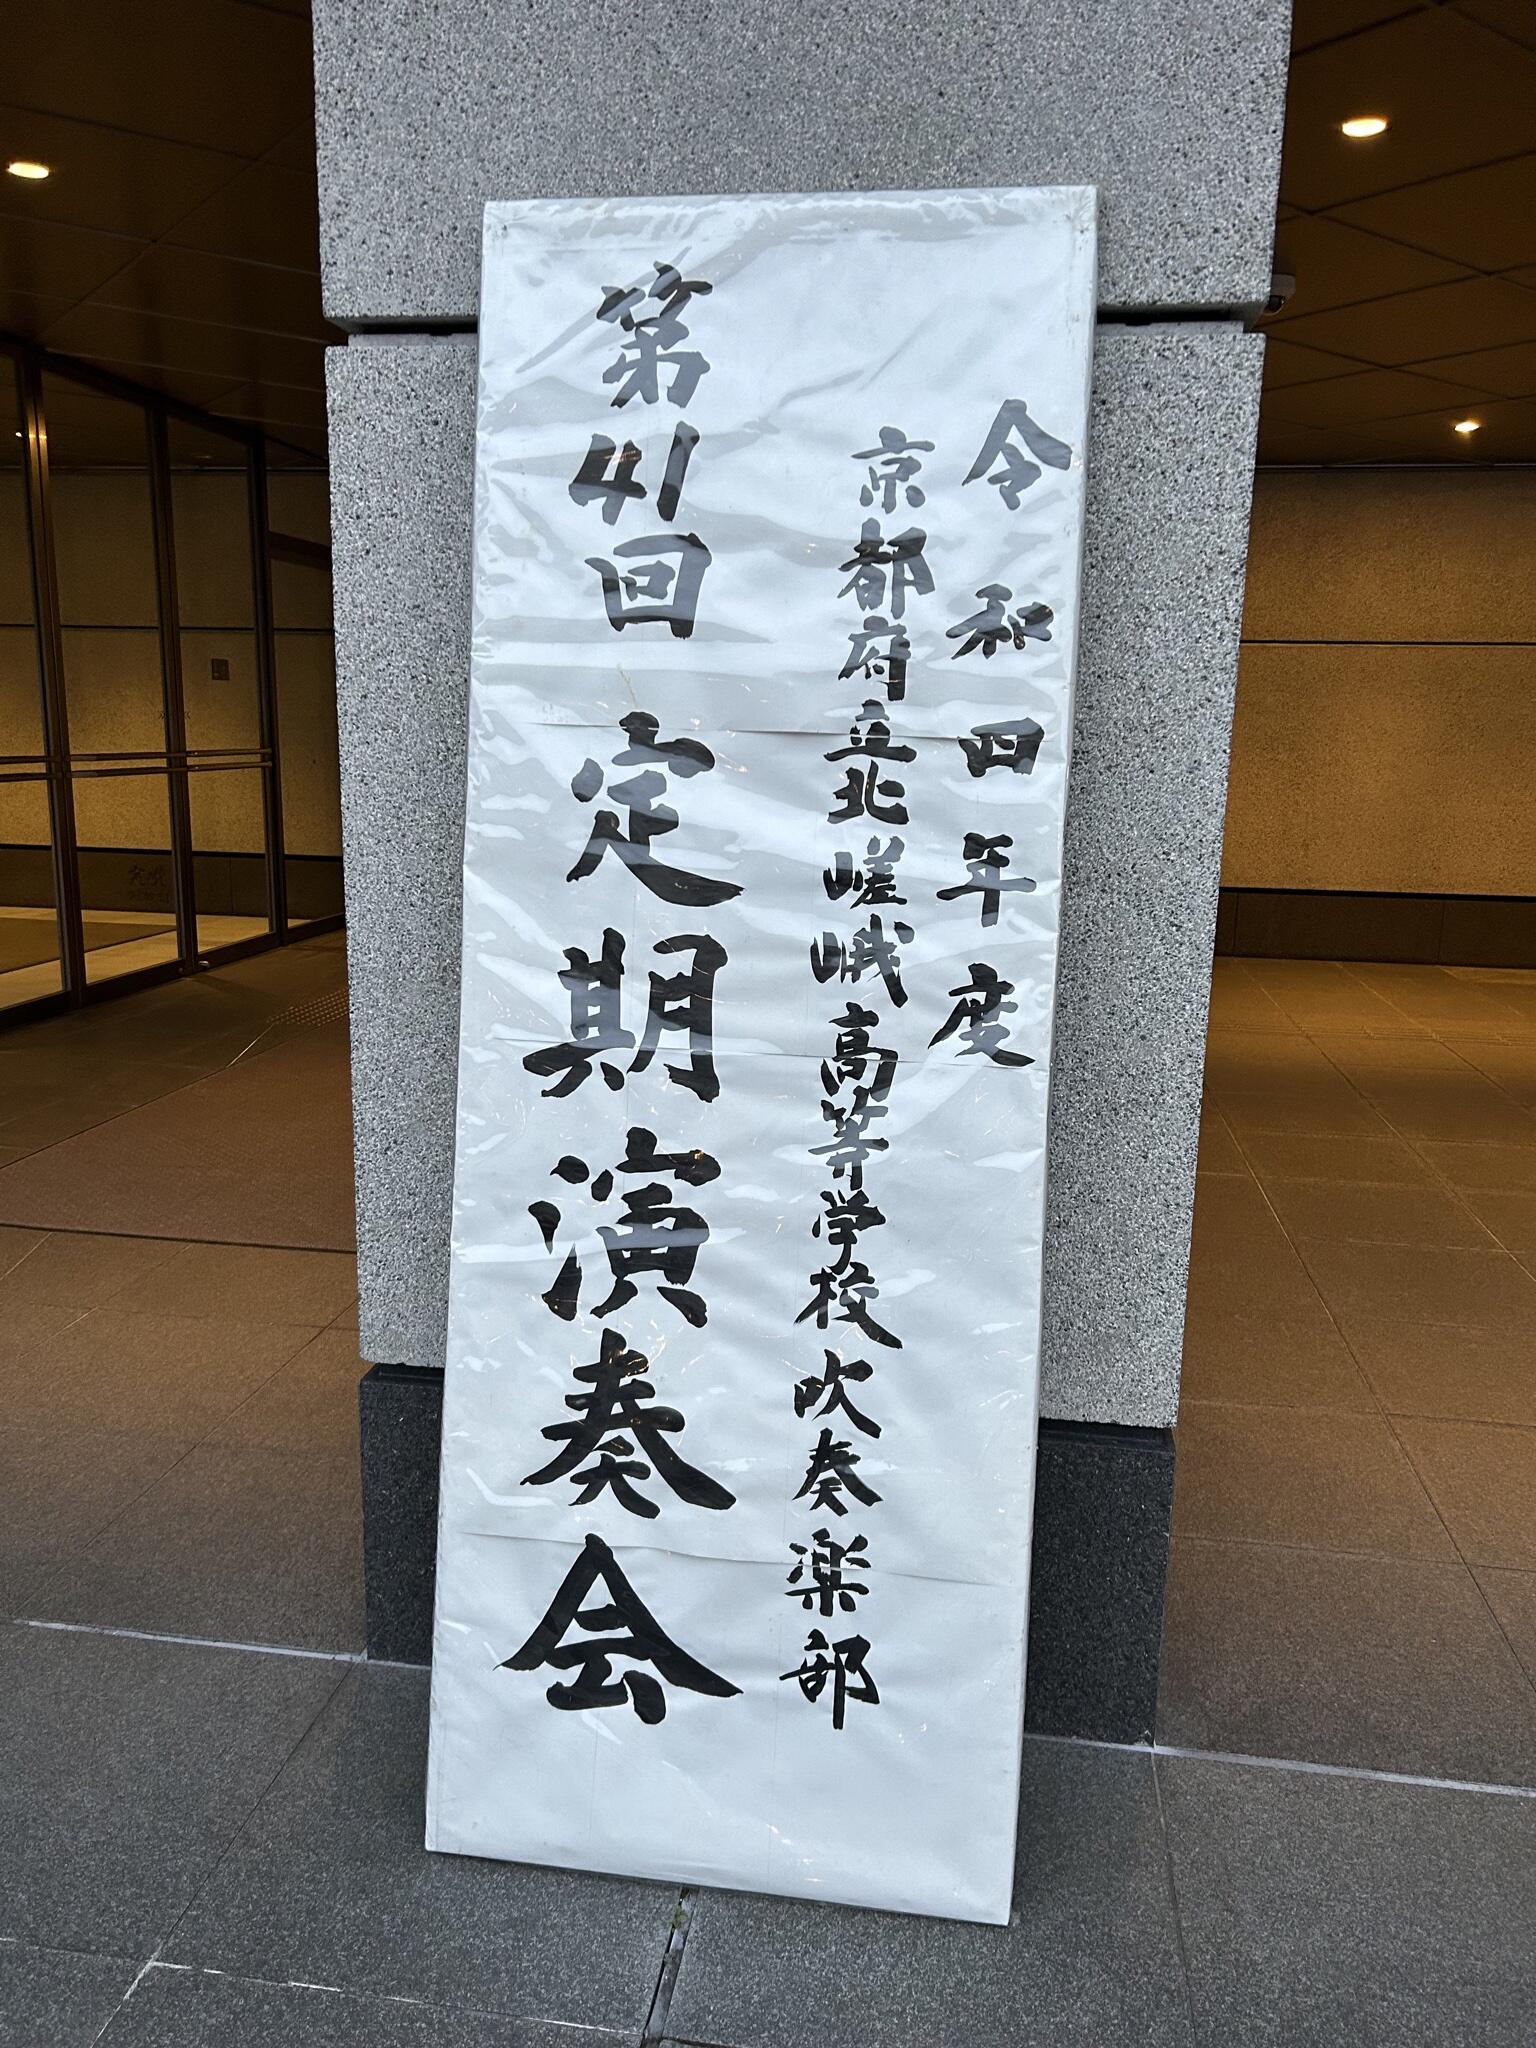 令和四年度
京都府立北嵯峨高等学校吹奏楽部
第41回定期演奏会